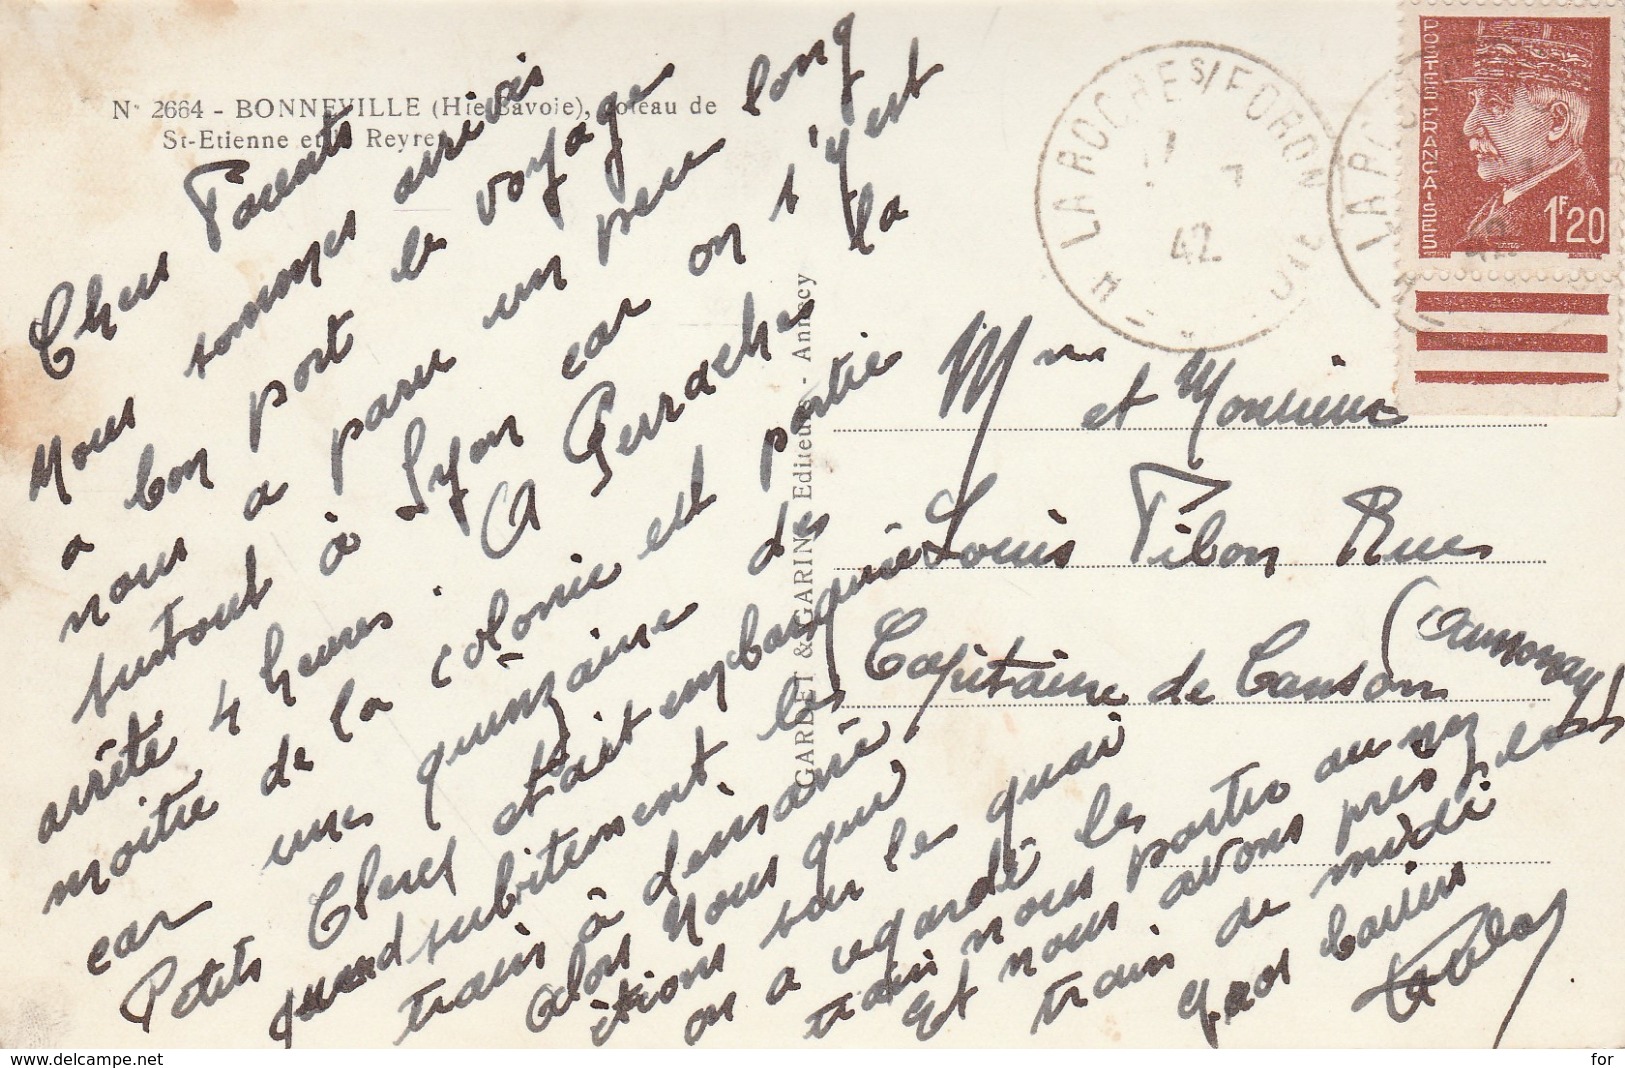 N° 2664 - BONNEVILLE (Hte-Savoie), coteau de
St-Etienne et le Reyret
Chers Parents
Nous sommes arrivés
a bon port le voyage
nous a paru un peu long
surtout à Lyon car on s'y est
arrêté 4 heures. A Perrache la
moitié de la colonie est partie
car une quinzaine des
Petits Clercs était embarquée
quand subitement les
train à démarré,
alors nous qui
étions sur le quai
on a regardé le
train nous partir au nez
Et nous avons pris le
train de midi
gros baisers
GARDET & GARIN Editeurs - Annecy
LA ROCHE S/ FORON
17 7
42
Hte
LA ROCHE
42
POSTES FRANÇAISES
1F20
Mme et Monsieur
Louis Tibon Rue
Capitaine de Canson
(Annonay)
delcampe.net
for